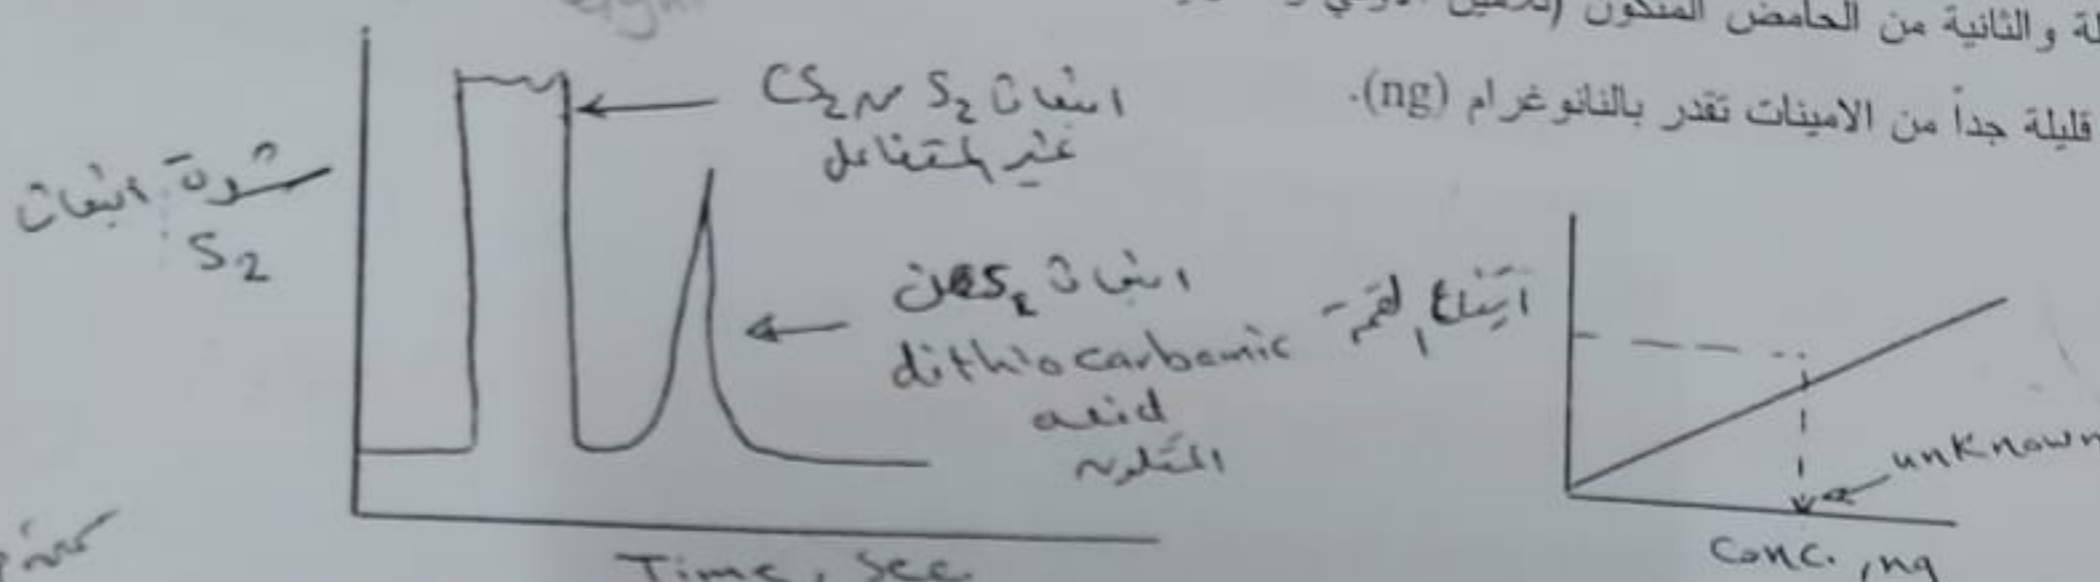 لة والثانية من الحامض المتكون
قليلة جداً من الامينات تقدر بالنانوغرام (ng).
انبعاث S2 من CS2
غير المتفاعل
شدة انبعاث
S2
انبعاث S2 من
dithiocarbamic
acid
المتكون
Time, Sec.
ارتفاع القمة
unknown
Conc., ng